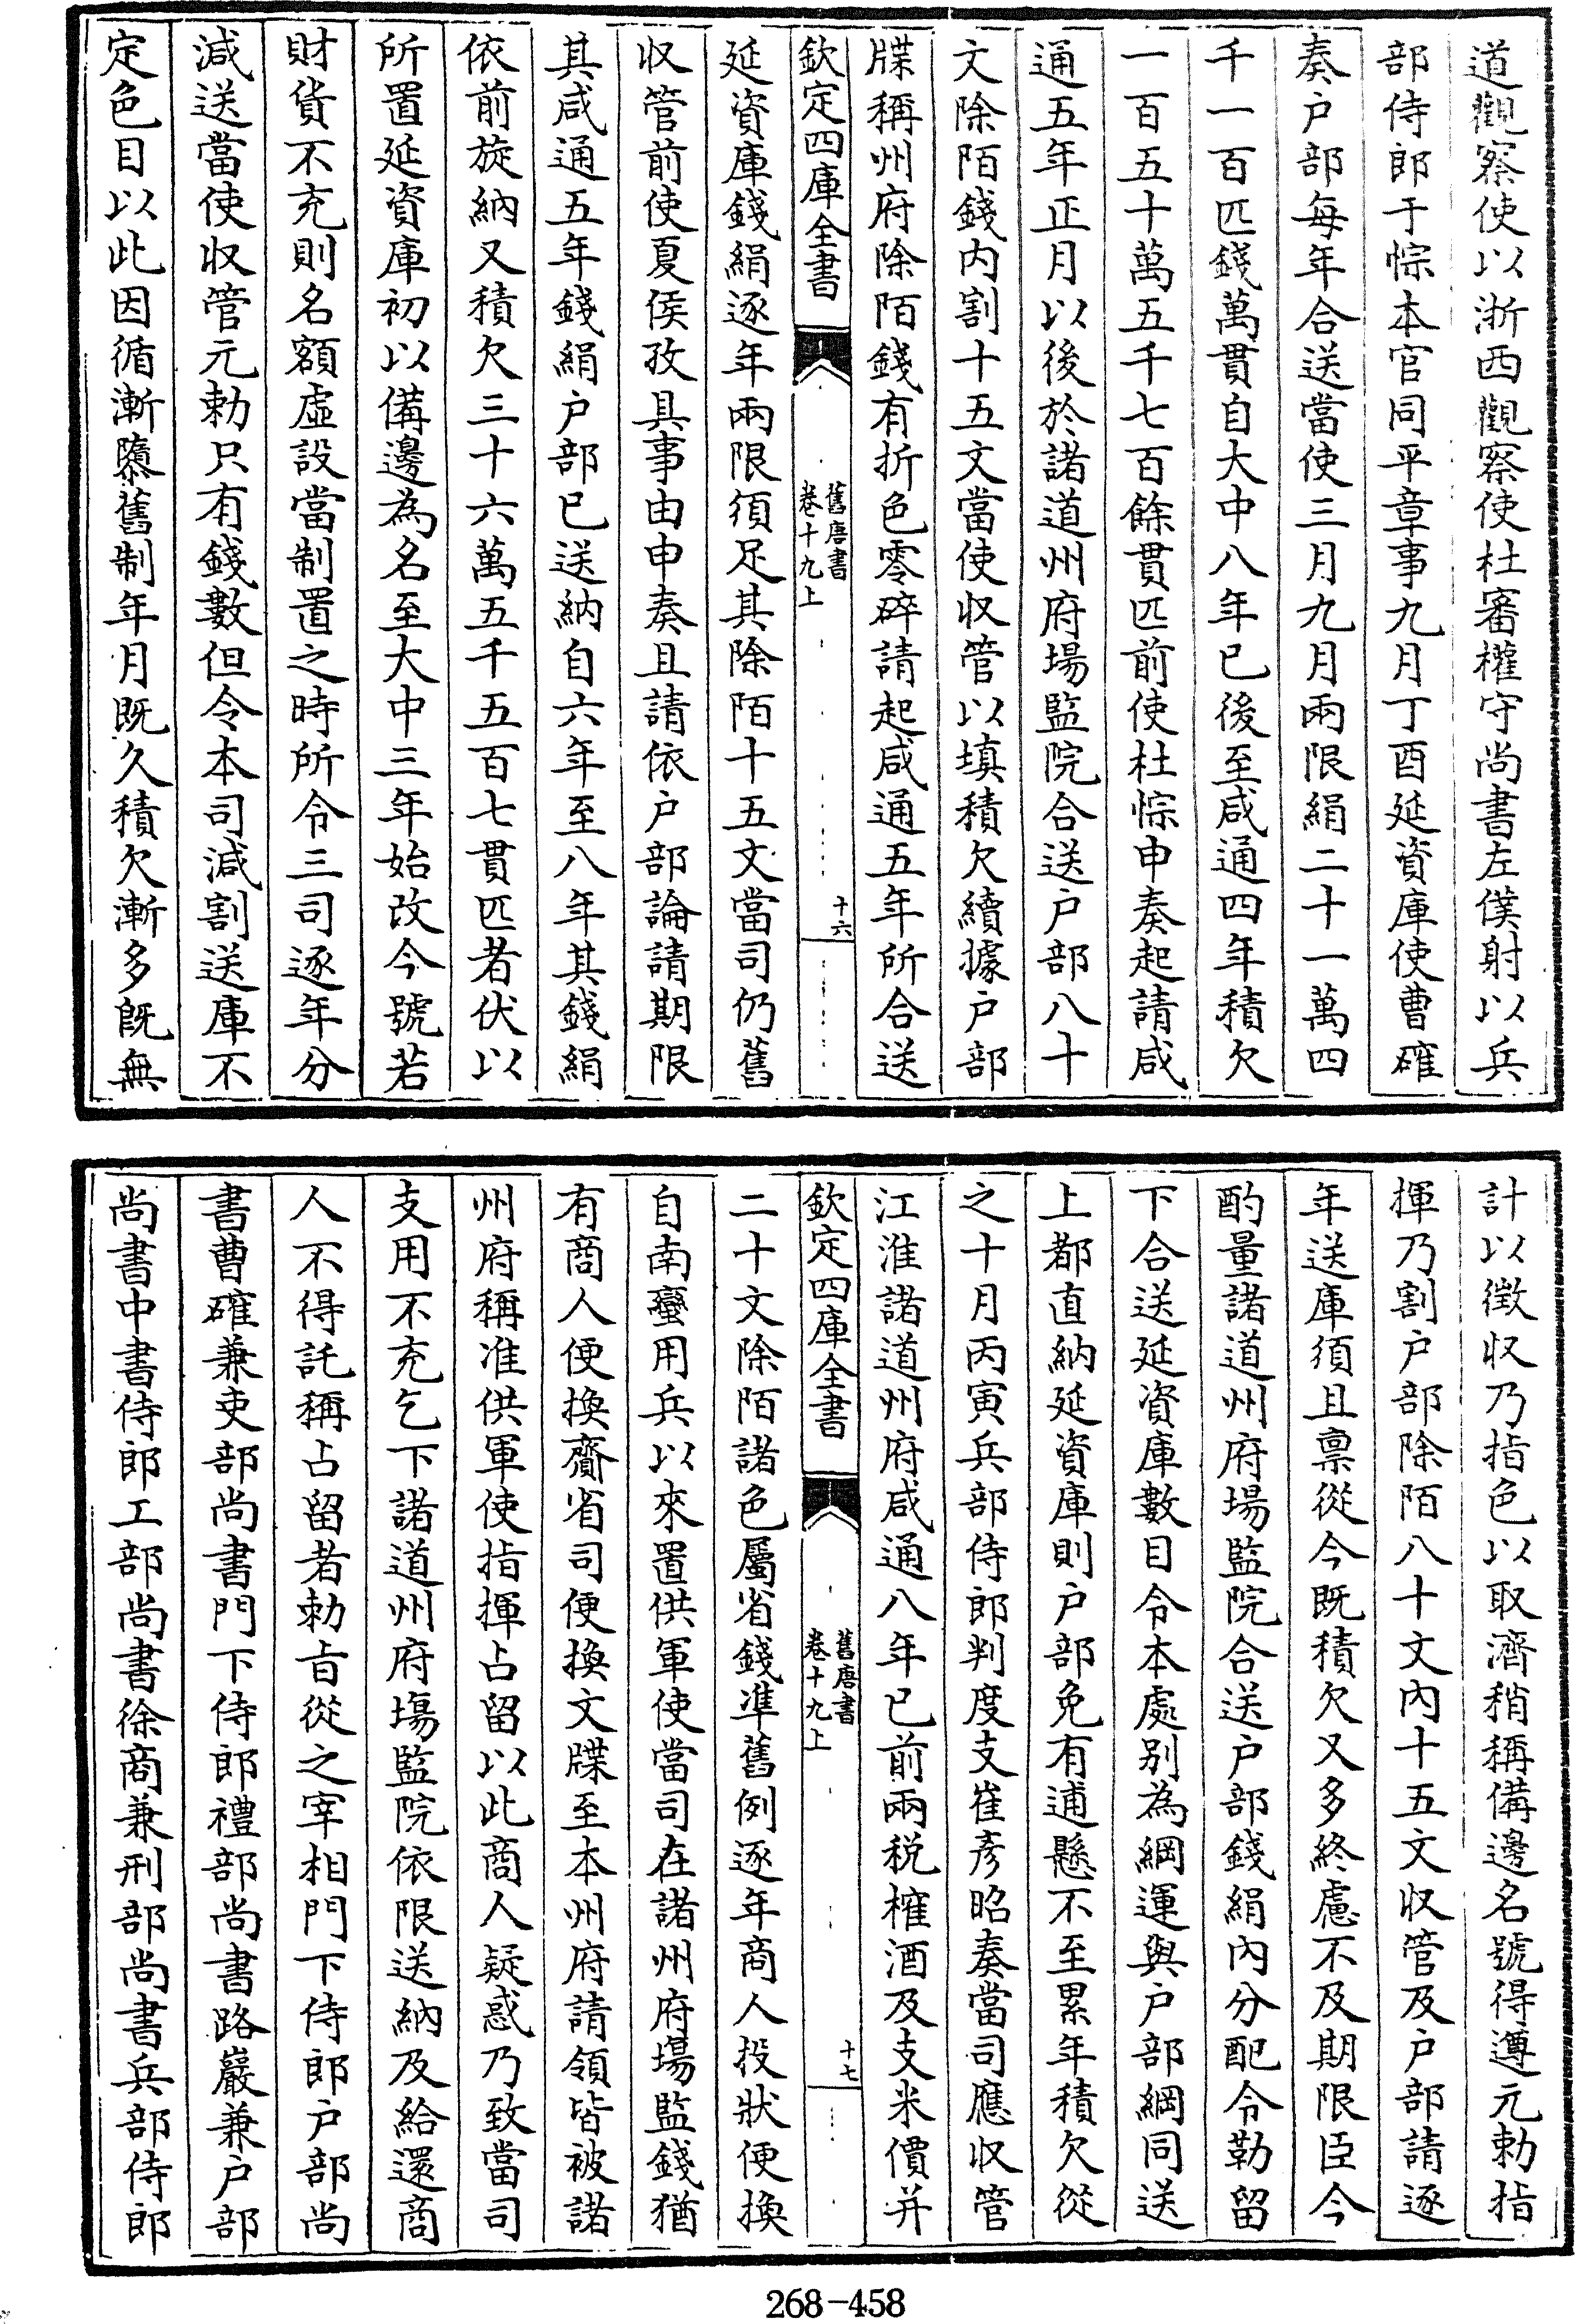 道觀察使以浙西觀察使杜審權守尚書左僕射以兵
部侍郎于悰本官同平章事九月丁酉延資庫使曹確
奏户部每年合送當使三月九月兩限絹二十一萬四
千一百匹錢萬貫自大中八年已後至咸通四年積欠
一百五十萬五千七百餘貫匹前使杜悰申奏起請咸
通五年正月以後於諸道州府場監院合送户部八十
文除陌錢内割十五文當使收管以填積欠續據户部
牒稱州府除陌錢有折色零碎請起咸通五年所合送
欽定四庫全書
舊唐書
卷十九上
十六
延資庫錢絹逐年兩限須足其除陌十五文當司仍舊
收管前使夏侯孜具事由申奏且請依户部論請期限
其咸通五年錢絹户部已送納自六年至八年其錢絹
依前旋納又積欠三十六萬五千五百七貫匹者伏以
所置延資庫初以備邊為名至大中三年始改今號若
財貨不充則名額虛設當制置之時所令三司逐年分
減送當使收管元勅只有錢數但令本司減割送庫不
定色目以此因循漸隳舊制年月既久積欠漸多既無
計以徴收乃指色以取濟稍稱備邊名號得遵元勅指
揮乃割户部除陌八十文內十五文收管及户部請逐
年送庫須且禀從今既積欠又多終慮不及期限臣今
酌量諸道州府場監院合送户部錢絹內分配令勒留
下合送延資庫數目令本處别為綱運與户部綱同送
上都直納延資庫則户部免有逋懸不至累年積欠從
之十月丙寅兵部侍郎判度支崔彦昭奏當司應收管
江淮諸道州府咸通八年已前兩税榷酒及支米價并
欽定四庫全書
舊唐書
卷十九上
十七
二十文除陌諸色屬省錢凖舊例逐年商人投狀便換
自南蠻用兵以來置供軍使當司在諸州府場監錢猶
有商人便換齎省司便換文牒至本州府請領皆被諸
州府稱准供軍使指揮占留以此商人疑惑乃致當司
支用不充乞下諸道州府場監院依限送納及給還商
人不得託稱占留者勅旨從之宰相門下侍郎户部尚
書曹確兼吏部尚書門下侍郎禮部尚書路巖兼户部
尚書中書侍郎工部尚書徐商兼刑部尚書兵部侍郎
268-458